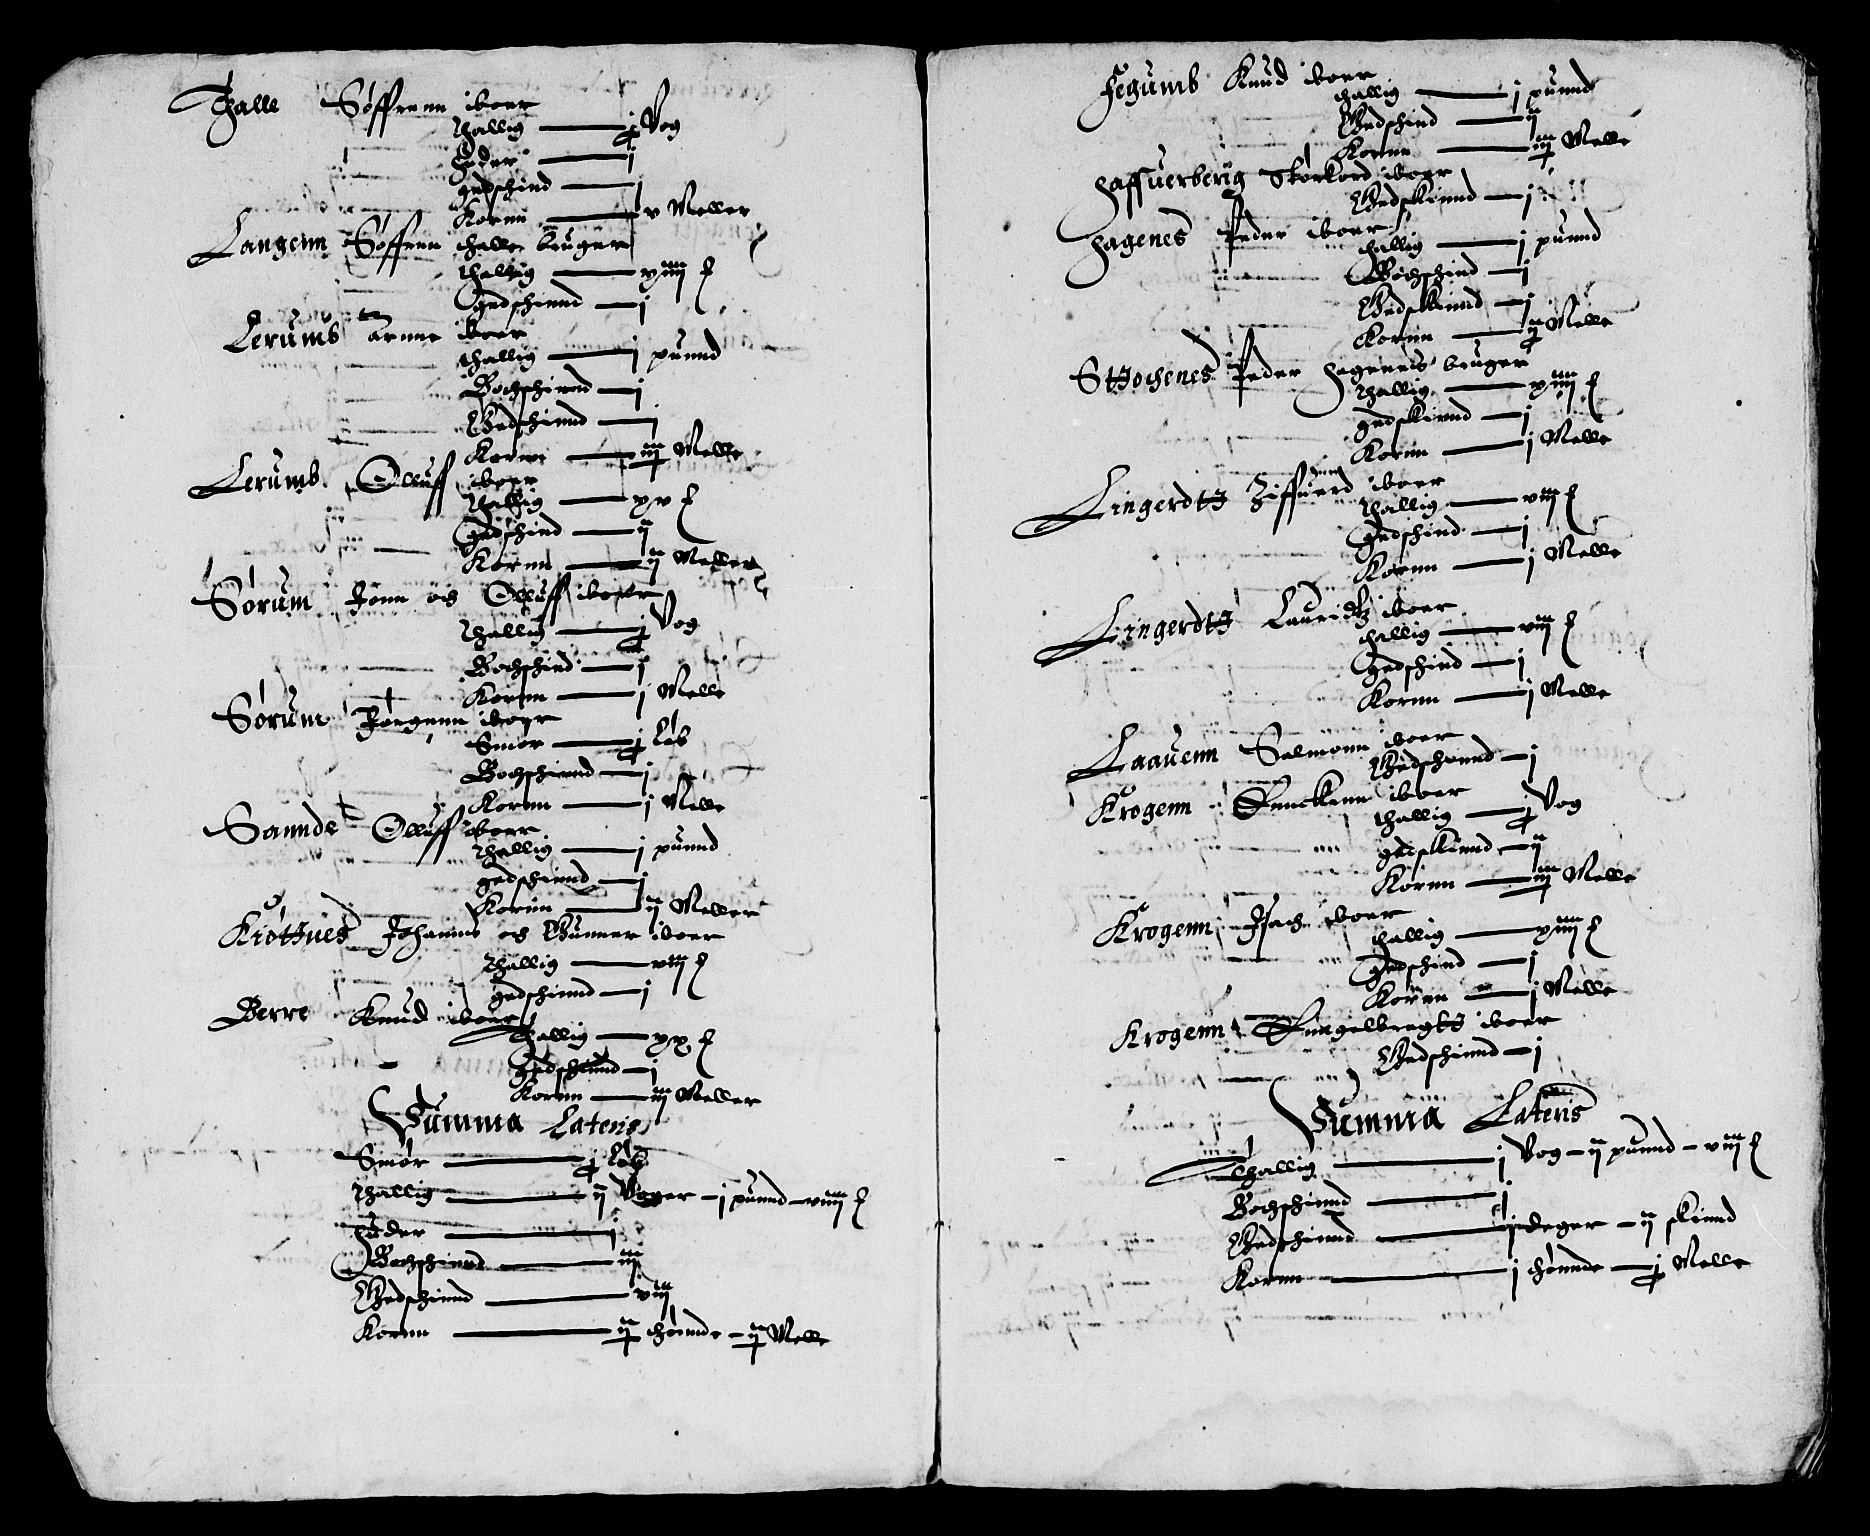 Thalle Søffrenn iboer
Thallig — j Vog
Huder — j
gedschind — j
Kornn — v Meller
Langenn Søffrenn Thalle bruger
Thallig — xiiij
Gedschinnd — j
Lerumb arnne iboer
thallig — j puund
Bochschinnd — j
Gedschinnd — j
Kornn — iiij Melle
Lerumb Olluff iboer
Thallig — xv
Gedschind — ij
Kornn — ij Meller
Sørum Jonn och Olluff iboer
Thallig — j Vog
Bochschind — j
Kornn — j Melle
Sørum Jørgenn iboer
Smør — j Løb
Bochschinnd — j
Kornn — j Melle
Sannde Olluff iboer
Thallig — j puund
gedschinnd — j
Kornn — ij Meller
Krottnes Johannes och Gunner iboer
Thallig — viij
gedschinnd — j
Berre Knud iboer
Thallig — xx
Gedschinnd — j
Kornn — iij Meller
Summa Lateris
Smør — j Løb
Thallig — ij Voger – j puund – viiij
Huder — j
Bochschinnd — iij
Gedschinnd — viij
Kornn — ij thønnde – ij Melle
Fegumb Knud iboer
thallig — j puund
Gedschind — ij
Kornn — iiij Melle
Haffuerberig Storkord iboer
Gedskinnd — j
Hagenes Peder iboer
thallig — j puund
Bochschind — j
Gedskinnd — j
Kornn — ij Melle
Sttochenes Peder Hagennes bruger
Thallig — xiiij
gedskinnd — j
Kornn — j Melle
Lingerdtz Ziffuerd iboer
Thallig — viij
Gedschind — j
Kornn — j Melle
Lingerdtz Lauridtz iboer
thallig — viij
Gedschind — j
Kornn — j Melle
Laauenn Salmonn iboer
Gedschinnd — j
Krogenn Ennckenn iboer
thallig — j Vog
gedskinnd — ij
Kornn — iij Melle
Krogenn Isach iboer
thallig — xiiij
Gedschind — j
Kornn — j Melle
Krogenn Enngelbregtz iboer
Gedschinnd — j
Summa Lateris
Thallig — j Vog – ij puund – viij
Bochschinnd — j
Gedschinnd — j deger – ij skinnd
Kornn — j thønnde — j Melle